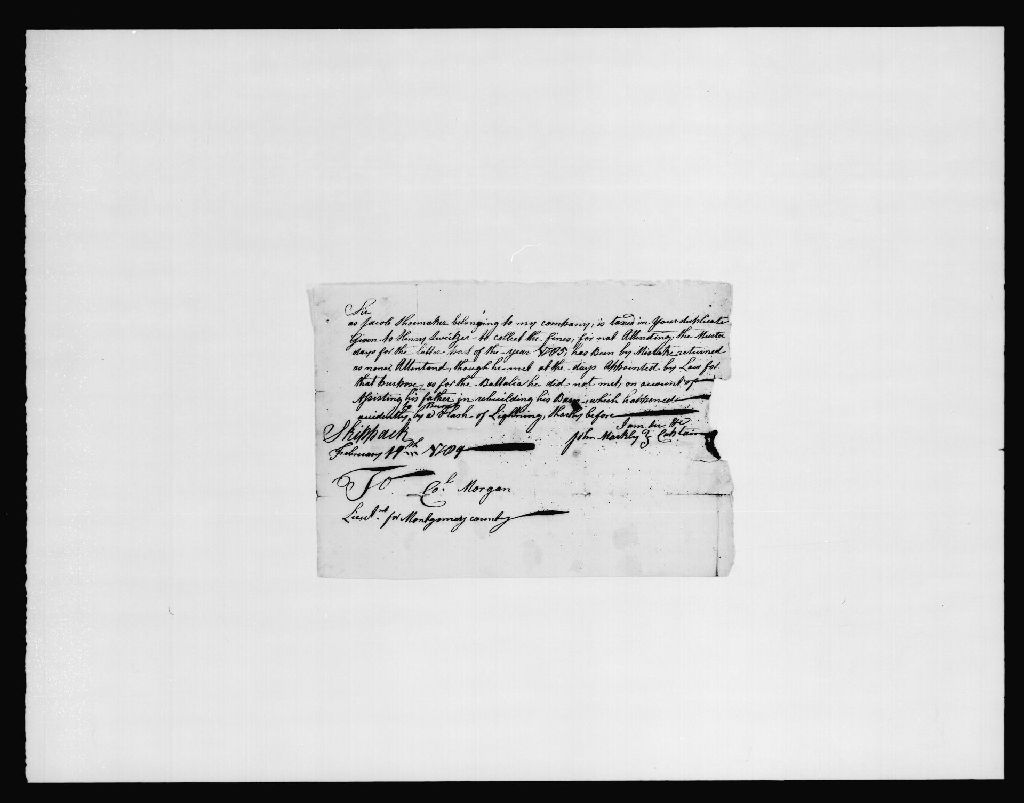 Sir
as Jacob Shoemaker belonging to my company, is taxed in Your duplicate
Given to Henry Switzer to collect the fines, for not Attending the Muster
days for the latter part of the year 1785, has Been by Mistake returned
as none Attentand, though he met at the days Appointed by Law for
that Purpose, as for the Battalia he did not met, on account of
Assisting his father in rebuilding his Barn, which happened
accidently, by a Flash of Lightning, Shortly before
I am Sir &c
Skippack
John Markly Captain
February 1789
To Col. Morgan
Lieut. for Montgomery county